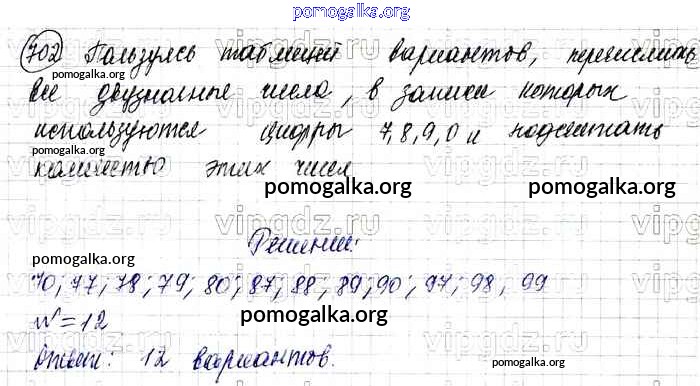 pomogalka.org
702 Пользуясь таблицей вариантов, перечислить
pomogalka.org
все двузначные числа, в записи которых
pomogalka.org
используются цифры 7,8,9,0 и подсчитать
pomogalka.org
количество этих чисел
pomogalka.org pomogalka.org
vipgdz.ru vipgdz.ru vipgdz.ru
Решение:
pomogalka.org
70; 77; 78; 79; 80; 87; 88; 89; 90; 97; 98, 99
pomogalka.org
N=12
Ответ: 12 вариантов.
pomogalka.org